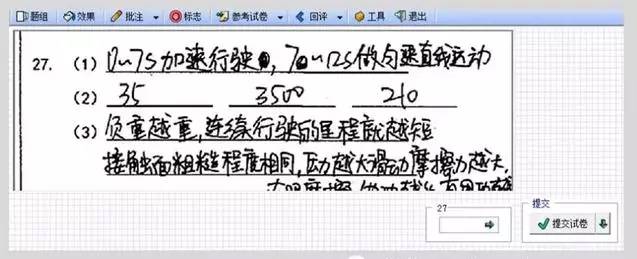 题组 效果 批注 标志 参考试卷 回评 工具 退出
27. (1) 0~7s加速行驶, 7~12s做匀速直线运动
(2) 35 3500 210
(3) 负重越重,连续行驶的里程就越短
接触面粗糙程度相同,压力越大滑动摩擦力越大,
27
提交
提交试卷